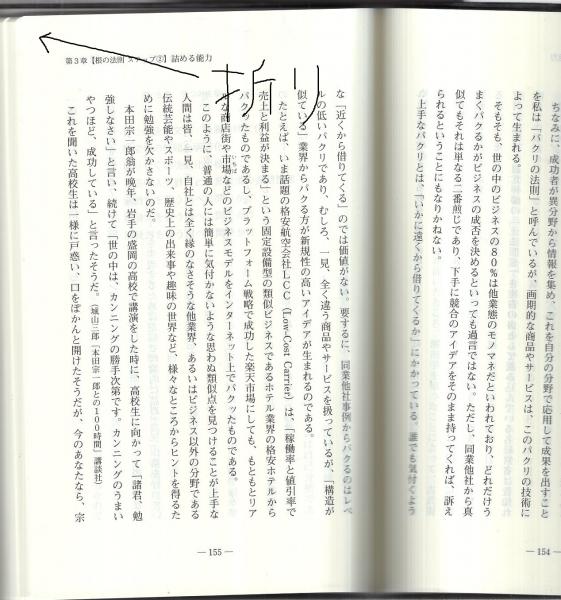 ちなみに、成功者が異分野から情報を集め、これを自分の分野で応用して成果を出すこと
を私は「パクリの法則」と呼んでいるが、画期的な商品やサービスは、このパクリの技術に
よって生まれる。
そもそも、世の中のビジネスの80%は他業態のモノマネだといわれており、どれだけう
まくパクるかがビジネスの成否を決めるといっても過言ではない。ただし、同業他社から真
似てもそれは単なる二番煎じであり、下手に競合のアイデアをそのまま持ってくれば、訴え
られるということにもなりかねない。
上手なパクリとは、「いかに遠くから借りてくるか」にかかっている。誰でも気付くよう
― 154 ―
第3章【根の法則 ステップ②】詰める能力
折り
な「近くから借りてくる」のでは価値がない。要するに、同業他社事例からパクるのはレベ
ルの低いパクリであり、むしろ、一見、全く違う商品やサービスを扱っているが、「構造が
似ている」業界からパクる方が新規性の高いアイデアが生まれるのである。
たとえば、いま話題の格安航空会社LCC(Low-Cost Carrier)は、「稼働率と値引率で
売上と利益が決まる」という固定設備型の類似ビジネスであるホテル業界の格安ホテルから
パクったものであるし、プラットフォーム戦略で成功した楽天市場にしても、もともとリア
な商店街や市場などのビジネスモデルをインターネット上でパクッたものである。
いちば
このように、普通の人には簡単に気付かないような思わぬ類似点を見つけることが上手な
人間は皆、一見、自社とは全く縁のなさそうな他業界、あるいはビジネス以外の分野である
伝統芸能やスポーツ、歴史上の出来事や趣味の世界など、様々なところからヒントを得るた
めに勉強を欠かさないのだ。
本田宗一郎翁が晩年、岩手の盛岡の高校で講演をした時に、高校生に向かって「諸君、勉
強しなさい」と言い、続けて「世の中は、カンニングの勝手次第です。カンニングのうまい
やつほど、成功している」と言ったそうだ。(城山三郎『本田宗一郎との100時間』講談社)
これを聞いた高校生は一様に戸惑い、口をぽかんと開けたそうだが、今のあなたなら、宗
― 155 ―